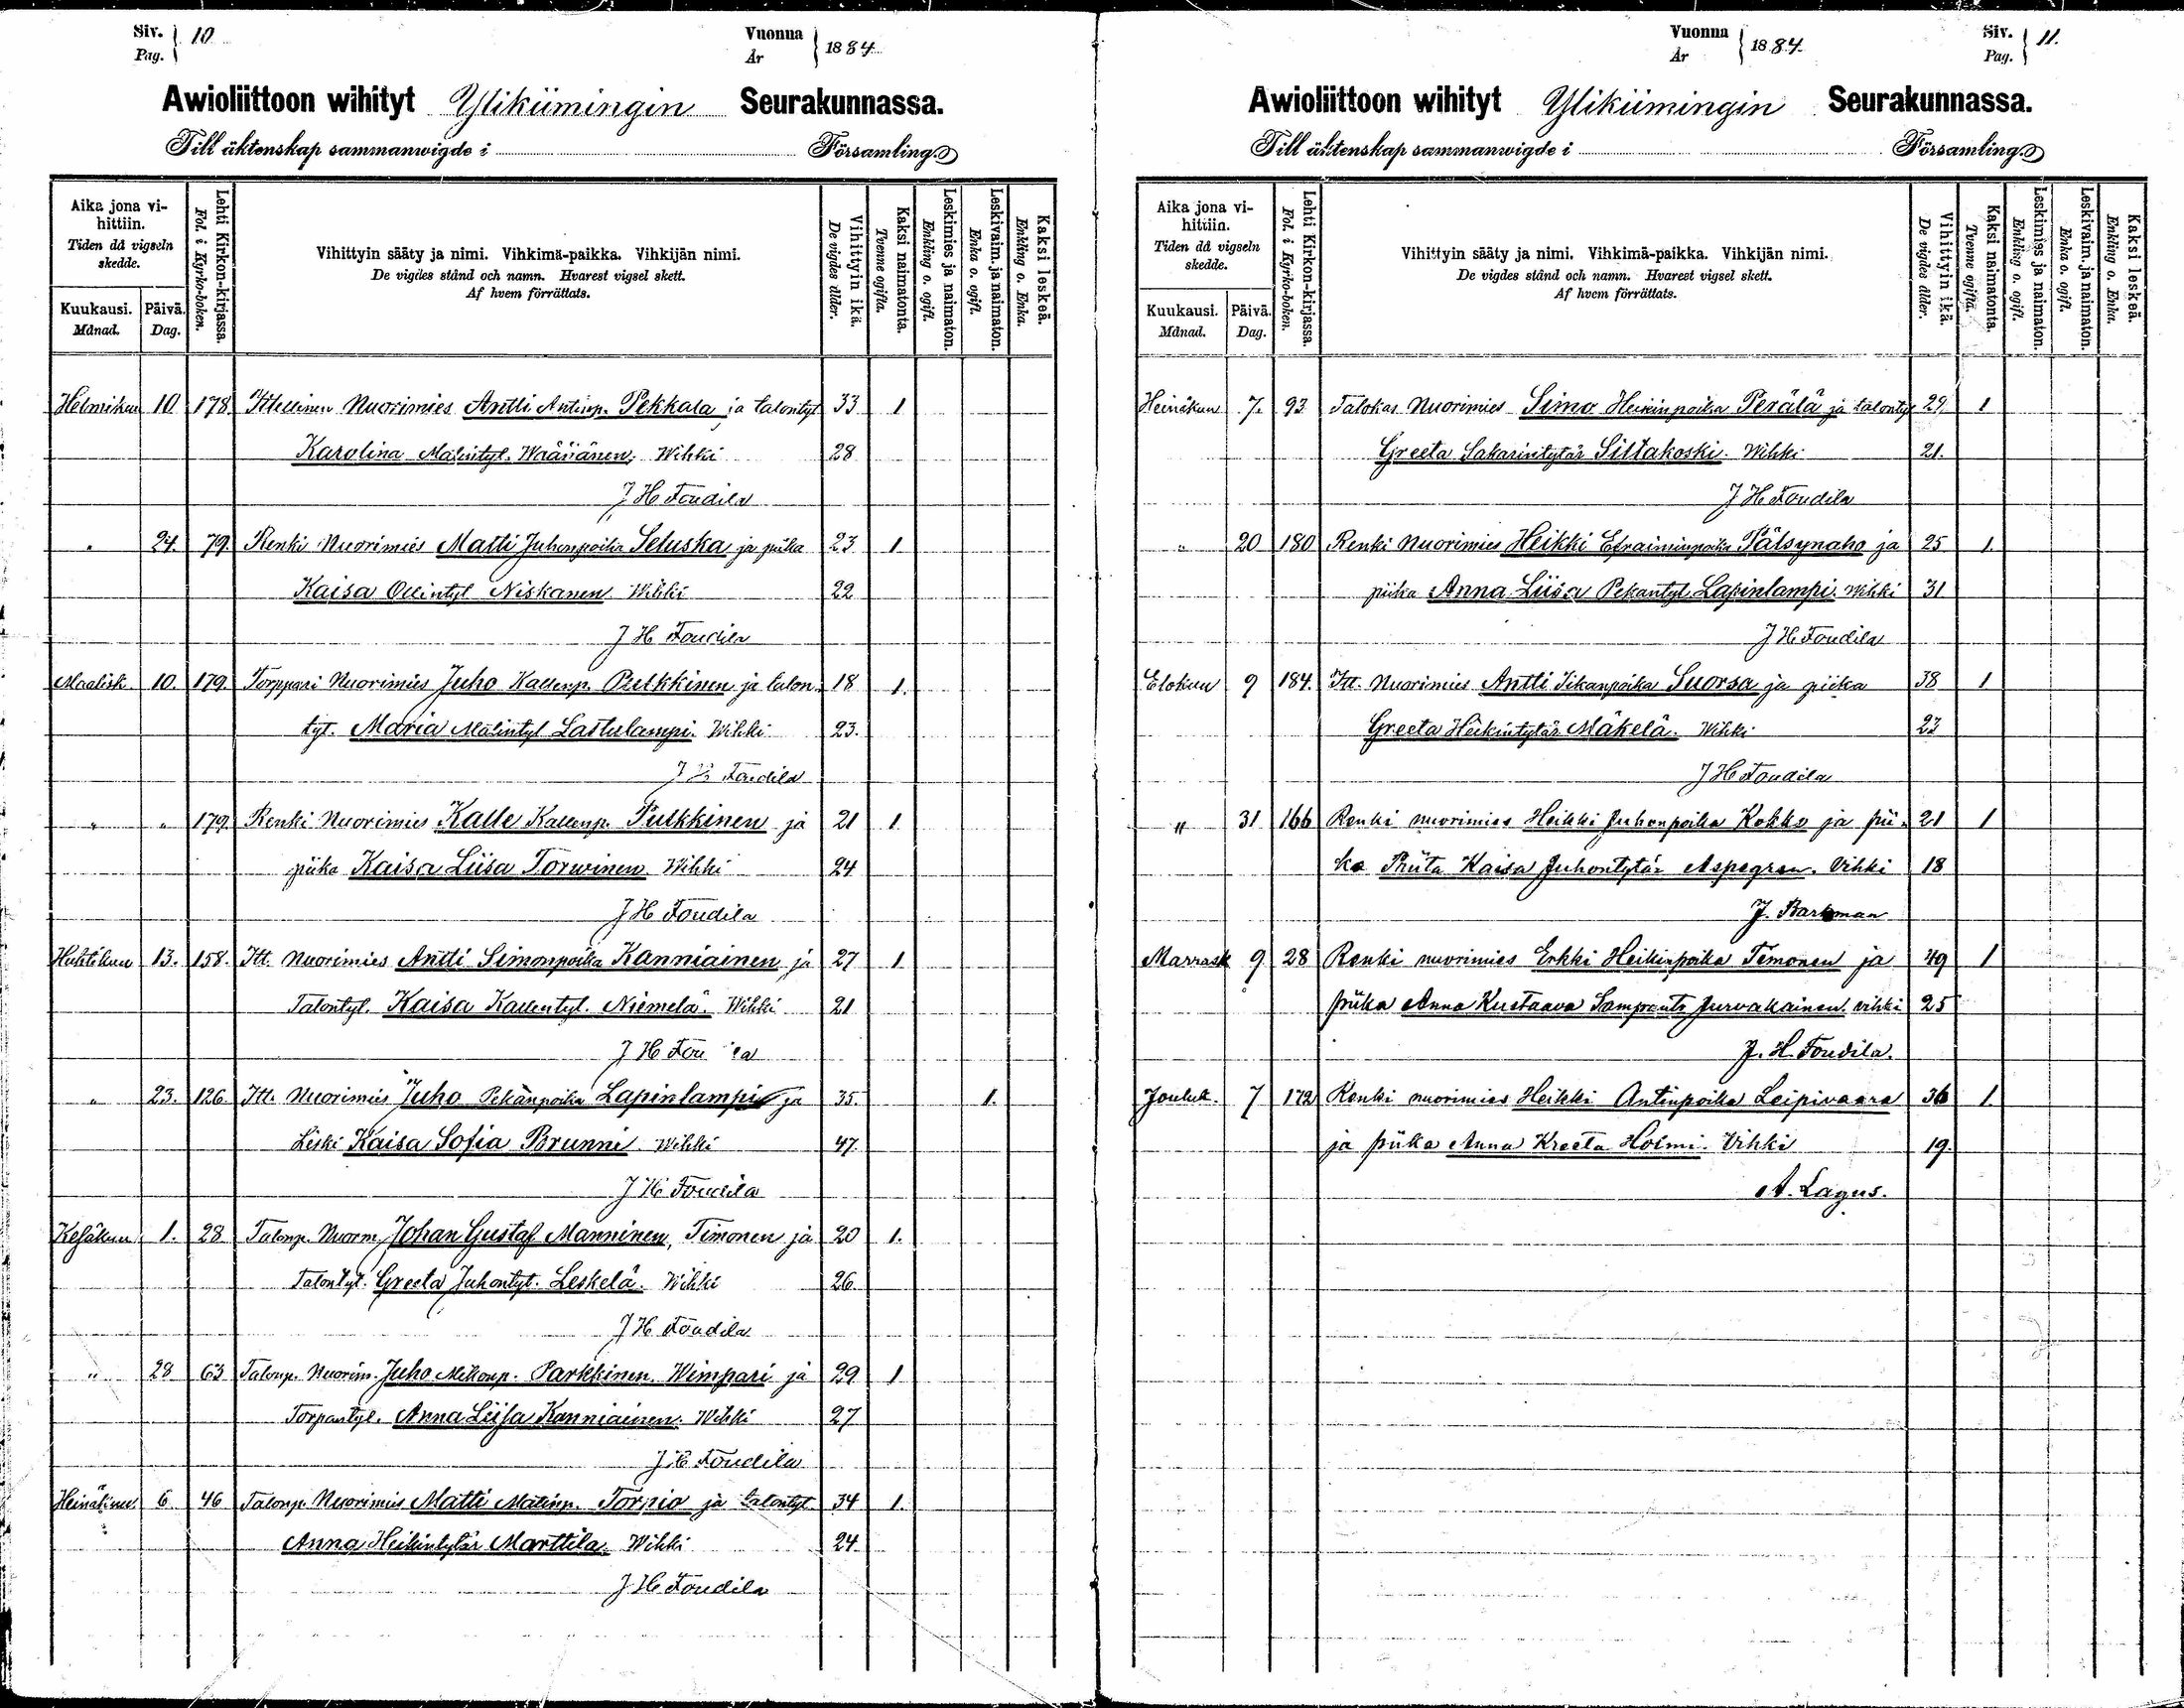 Siv. Pag. 10
Vuonna År 1884
Awioliittoon wihityt Ylikiimingin Seurakunnassa.
Till äktenskap sammanwigde i Församling.
Aika jona vihittiin.
Tiden då vigseln skedde.
Kuukausi. Månad.
Päivä. Dag.
Lehti Kirkon-kirjassa.
Fol. i Kyrko-boken.
Vihittyin sääty ja nimi. Vihkimä-paikka. Vihkijän nimi.
De vigdes stånd och namn. Hvarest vigsel skett.
Af hvem förrättats.
Vihittyin ikä.
De vigdes ålder.
Kaksi naimatonta.
Tvenne ogifta.
Leskimies ja naimaton.
Enkling o. ogift.
Leskivaim. ja naimaton.
Enka o. ogift.
Kaksi leskeä.
Enkling o. Enka.
Helmikuu 10 178 Ittellinen Nuorimies Antti Antinp. Pekkala ja talontyt 33 1
Karolina Matintyt. Wääränen, Wihki 28
J H Foudila
" 24. 79. Renki Nuorimies Matti Juhonpoika Seluska ja piika 23 1
Kaisa Ollintyt Niskanen Wihki 22
J H Foudila
Maalisk. 10. 179. Torppari Nuorimies Juho Kallenp. Pulkkinen ja talon- 18 1.
tyt. Maria Matintyt Lastulampi. Wihki 23.
J H Foudila
" " 179. Renki Nuorimies Kalle Kallenp. Pulkkinen ja 21 1
piika Kaisa Liisa Torwinen Wihki 24
J H Foudila
Huhtikuu 13. 158. Itt. Nuorimies Antti Simonpoika Kanniainen ja 27 1
Talontyt. Kaisa Kallentyt. Niemelä. Wihki 21
J H Fou la
" 23. 126. Itt. Nuorimies Juho Pekanpoika Lapinlampi ja 35. 1.
Leski Kaisa Sofia Brunni. Wihki 47.
J H Foudila
Kesäkuu 1. 28 Talonp. Nuorm. Johan Gustaf Manninen, Timonen ja 20 1.
Talontyt. Greeta Juhontyt. Leskelä. Wihki 26.
J H Foudila
" 28 63 Talonp. Nuorim. Juho Mikonp. Parkkinen. Wimpari ja 29 1
Torpantyt. Anna Liisa Kanniainen. Wihki 27
J H Foudila
Heinäkuu 6. 46 Talonp. Nuorimies Matti Matinp. Torpio ja talontyt 34 1.
Anna Heikintytär Marttila. Wihki 24.
J H Foudila
Vuonna År 1884.
Siv. Pag. 11.
Awioliittoon wihityt Ylikiimingin Seurakunnassa.
Till äktenskap sammanwigde i Församling.
Aika jona vihittiin.
Tiden då vigseln skedde.
Kuukausi. Månad.
Päivä. Dag.
Lehti Kirkon-kirjassa.
Fol. i Kyrko-boken.
Vihittyin sääty ja nimi. Vihkimä-paikka. Vihkijän nimi.
De vigdes stånd och namn. Hvarest vigsel skett.
Af hvem förrättats.
Vihittyin ikä.
De vigdes ålder.
Kaksi naimatonta.
Tvenne ogifta.
Leskimies ja naimaton.
Enkling o. ogift.
Leskivaim. ja naimaton.
Enka o. ogift.
Kaksi leskeä.
Enkling o. Enka.
Heinäkuu 7. 93 Talokas Nuorimies Simo Heikinpoika Perälä ja talontyt 29 1
Greeta Sakarintytär Siltakoski. Wihki 21.
J H Foudila
" 20 180 Renki Nuorimies Heikki Efraiminpoika Pätsynaho ja 25 1.
piika Anna Liisa Pekantyt. Lapinlampi. Wihki 31
J H Foudila
Elokuu 9 184. Itt. Nuorimies Antti Iikanpoika Suorsa ja piika 38 1
Greeta Heikintytär Mäkelä. Wihki 23
J H Foudila
" 31 166 Renki nuorimies Heikki Juhonpoika Kokko ja pii- 21 1
ka Priita Kaisa Juhontytär Aspegren. Vihki 18
J. Barkman
Marrask 9 28 Renki nuorimies Erkki Heikinpoika Timonen ja 49 1
piika Anna Kustaava Sampantr Jurvakainen. vihki 25
J. H. Foudila.
Jouluk. 7 172 Renki nuorimies Heikki Antinpoika Leipivaara 36 1.
ja piika Anna Kreeta Holmi. Vihki 19.
A. Lagus.